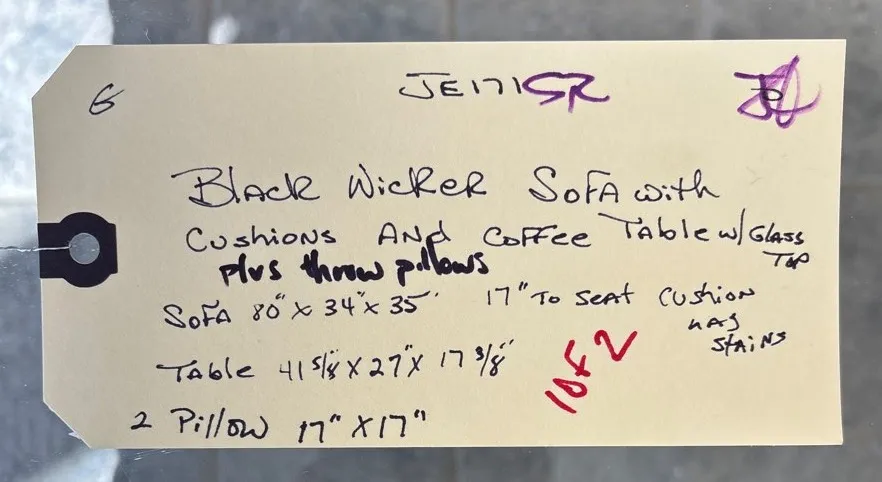 G JE171SR
Black Wicker Sofa with
Cushions And Coffee Table w/ Glass Top
plus throw pillows
Sofa 80" x 34" x 35" 17" To seat Cushion has stains
Table 41 5/8 x 27" x 17 3/8"
1 OF 2
2 Pillow 17" x 17"